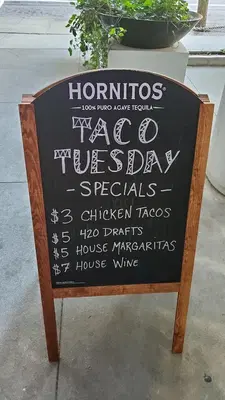 HORNITOS®
100% PURO AGAVE TEQUILA
TACO
TUESDAY
- SPECIALS -
$3 CHICKEN TACOS
$5 420 DRAFTS
$5 HOUSE MARGARITAS
$7 HOUSE WINE